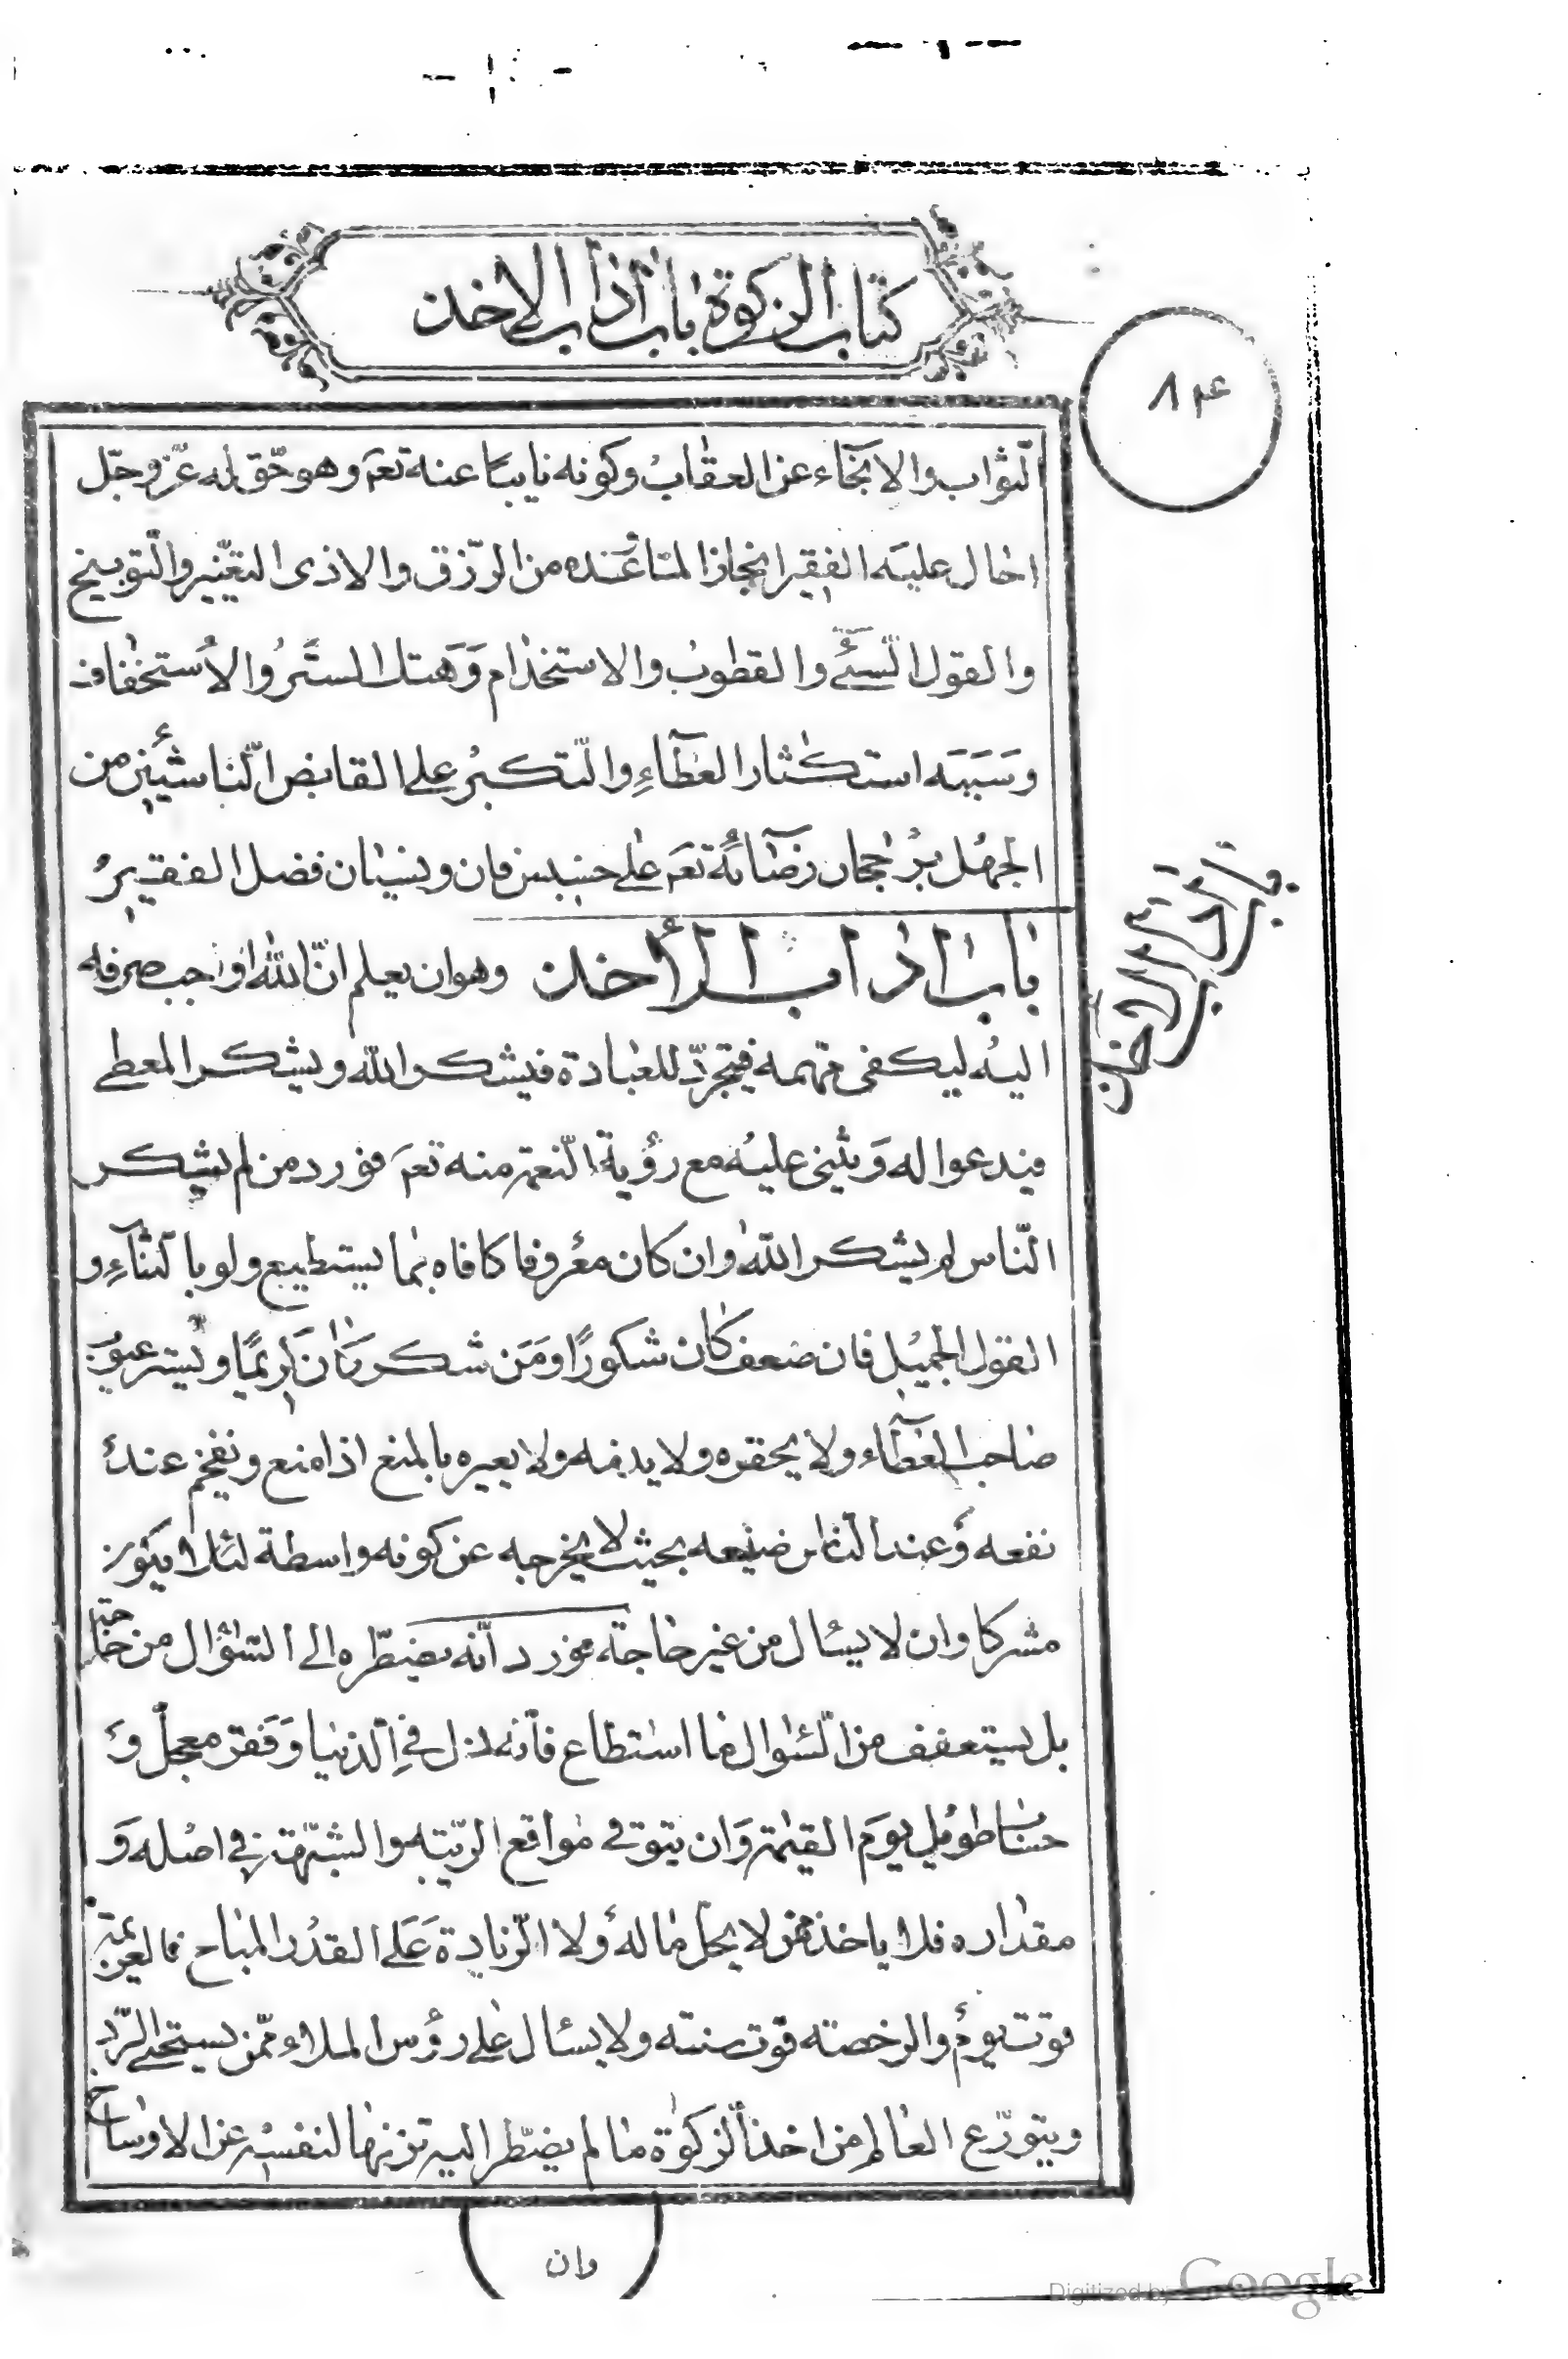 كتاب الزكوة باب اداب الاخذ
٨٤
الثواب والانجاء عن العقاب وكونه نايبا عنه تعم وهو حق لله عز وجل
احال عليه الفقير انجازا لما عنده من الرزق والاذى التعيير والتوبيخ
والقول السيئ والقطوب والاستخدام وهتك الستر والاستخفاف
وسببه استكثار العطاء والتكبر على القابض الناشئين من
الجهل برجحان رضائه تعم على خسيس فان ونسيان فضل الفقير
باب اداب الأخذ وهو ان يعلم ان الله اوجب صرفه
اليه ليكفى مهمه فيتجرد للعبادة فيشكر الله ويشكر المعطى
فيدعوا له ويثنى عليه مع رؤية النعمة منه تعم فورد من لم يشكر
الناس لم يشكر الله وان كان معروفا كافاه بما يستطيع ولو بالثناء و
القول الجميل فان ضعف كان شكورا ومن شكر كان كريما ويستر عيوب
صاحب العطاء ولا يحقره ولا يذمه ولا يعيره بالمنع اذا منع ونفخم عنده
نفعه وعند الناس صنيعه بحيث لا يخرجه عن كونه واسطة لئلا يكون
مشركا وان لا يسئال من غير حاجة فورد انه يضطره الى السؤال من حاجة
بل يستعفف من السئوال ما استطاع فانه ذل في الدنيا وفقر معجل و
حساب طويل يوم القيمة وان يتوقى مواقع الريبة والشبهة في اصله و
مقداره فلا ياخذ ممن لا يحل ماله ولا الزيادة على القدر المباح فالعزيمة
قوت يوم والرخصة قوت سنته ولا يسئال على رؤس الملاء ممن يستحيى الرد
ويتورع العالم من اخذ الزكوة ما لم يضطر اليه تنزيها لنفسه عن الاوساخ
وان
باب اداب الاخذ
Digitized by Google